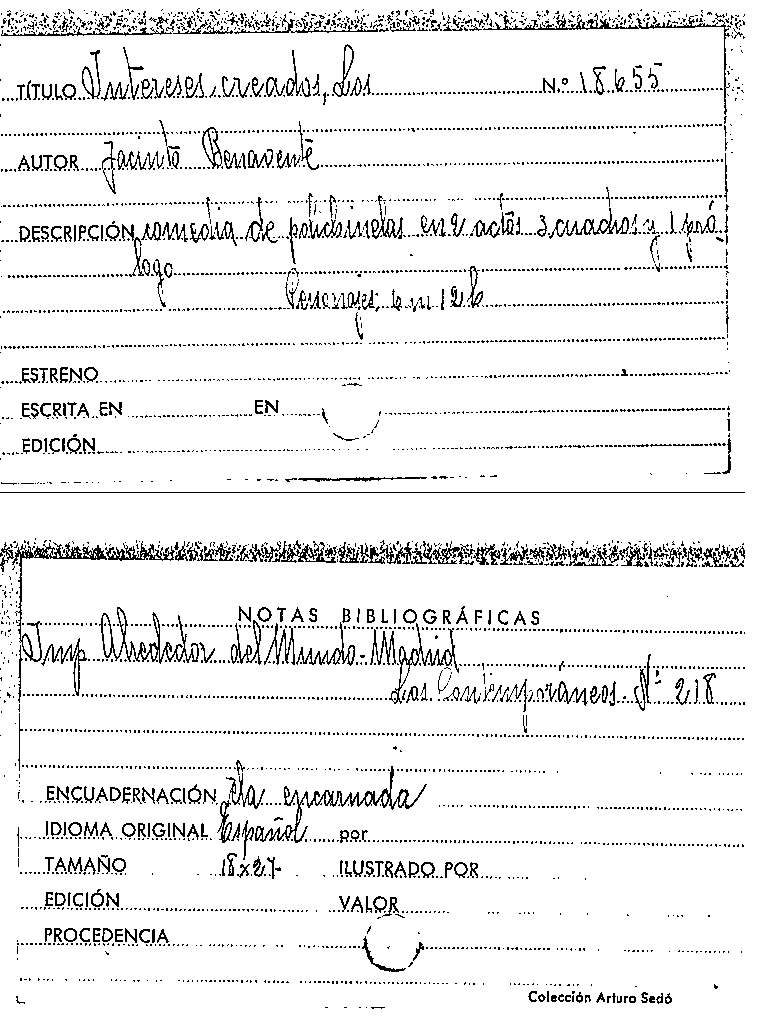 TÍTULO Intereses creados, Los N.º 18655
AUTOR Jacinto Benavente
DESCRIPCIÓN comedia de polichinelas en 2 actos 3 cuadros y 1 pró
logo
Personajes, 6 m 12 h
ESTRENO
ESCRITA EN EN
EDICIÓN
NOTAS BIBLIOGRÁFICAS
Imp Alrededor del Mundo - Madrid
Los Contemporáneos. Nº 218
ENCUADERNACIÓN Tla encarnada
IDIOMA ORIGINAL Español por
TAMAÑO 18x27 ILUSTRADO POR
EDICIÓN VALOR
PROCEDENCIA
Colección Arturo Sedó